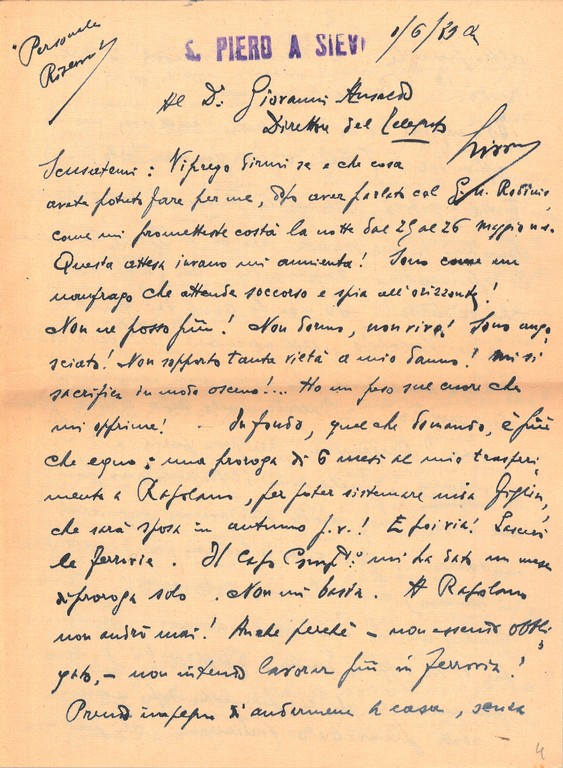 "Personale
Riservata"
S. PIERO A SIEVE
1/6/39
Al Dr. Giovanni Ansaldo
Direttore del Telegrafo
Livorno
Scusatemi: Vi prego dirmi se e che cosa
avete potuto fare per me, dopo aver parlato col
come mi prometteste costà la notte dal 25 al 26 maggio u.s.
Questa attesa invano mi annienta! Sono come un
naufrago che attende soccorso e spia all'orizzonte!
Non ne posso più! Non dormo, non vivo! Sono ango
sciato! Non sopporto tanta viltà a mio danno! Mi si
sacrifica in modo osceno!... Ho un peso sul cuore che
mi opprime! - In fondo, quel che domando, è più
che equo: una proroga di 6 mesi al mio trasferi
mento a Rapolano, per poter sistemare mia figlia,
che sarà sposa in autunno p.v.! E poi via! Lascerò
le ferrovie. Il Capo mi ha dato un mese
di proroga solo. Non mi basta. A Rapolano
non andrò mai! Anche perché - non essendo obbli
gato, - non intendo lavorar più in ferrovia!
Prendo impegno di andarmene a casa, senza
4